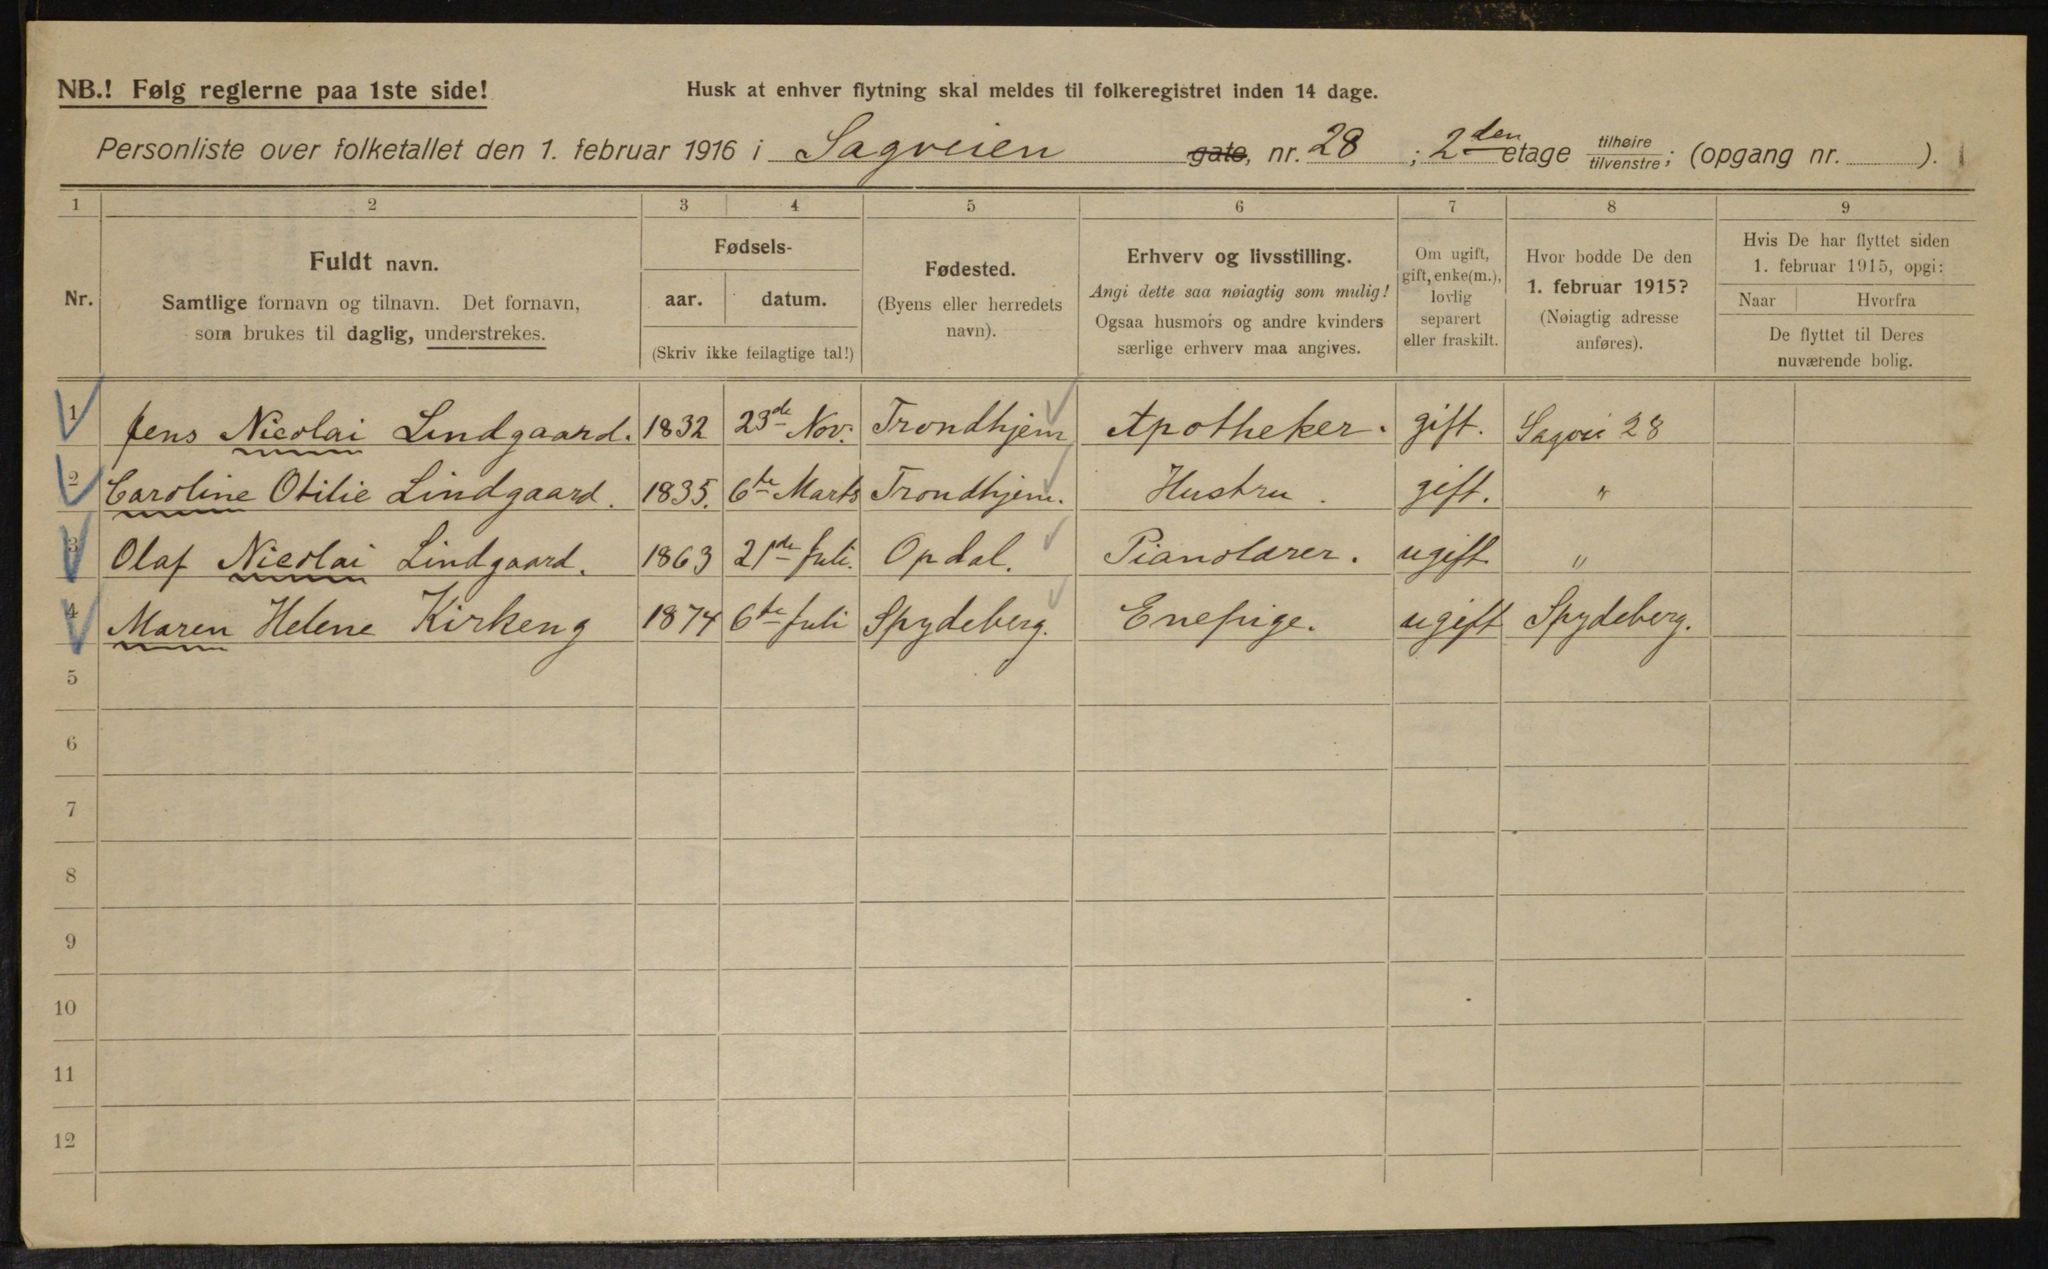 NB.! Følg reglerne paa 1ste side!
Husk at enhver flytning skal meldes til folkeregistret inden 14 dage.
Personliste over folketallet den 1. februar 1916 i Sagveien gate, nr. 28; 2den etage tilhøire/tilvenstre; (opgang nr. ).
1 2 3 4 5 6 7 8 9
Nr.
Fuldt navn.
Samtlige fornavn og tilnavn. Det fornavn,
som brukes til daglig, understrekes.
Fødsels-
aar. datum.
(Skriv ikke feilagtige tal!)
Fødested.
(Byens eller herredets
navn).
Erhverv og livsstilling.
Angi dette saa nøiagtig som mulig!
Ogsaa husmors og andre kvinders
særlige erhverv maa angives.
Om ugift,
gift, enke(m.),
lovlig
separert
eller fraskilt.
Hvor bodde De den
1. februar 1915?
(Nøiagtig adresse
anføres).
Hvis De har flyttet siden
1. februar 1915, opgi:
Naar Hvorfra
De flyttet til Deres
nuværende bolig.
1 Jens Nicolai Lindgaard. 1832 23de Nov. Trondhjem Apotheker. gift. Sagvei 28
2 Caroline Otilie Lindgaard. 1835. 6te Marts Trondhjem. Hustru. gift. "
3 Olaf Nicolai Lindgaard. 1863 21de Juli. Opdal. Pianolærer. ugift "
4 Maren Helene Kirkeng 1874 6te Juli Spydeberg. Enepige. ugift Spydeberg.
5
6
7
8
9
10
11
12